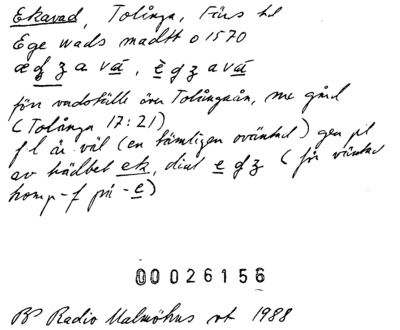 Ekavad, Tolånga, Färs hd
Ege wads mådtt o 1570
æg ʒ a vá, è g ʒ a vá
förr vadställe över Tolångaån, nu gård
(Tolånga 17:21)
f l är väl (en tämligen oväntad) gen pl
av trädbet ek, dial e g ʒ (för väntad
komp-f på -e)
00026156
BP Radio Malmöhus vt 1988